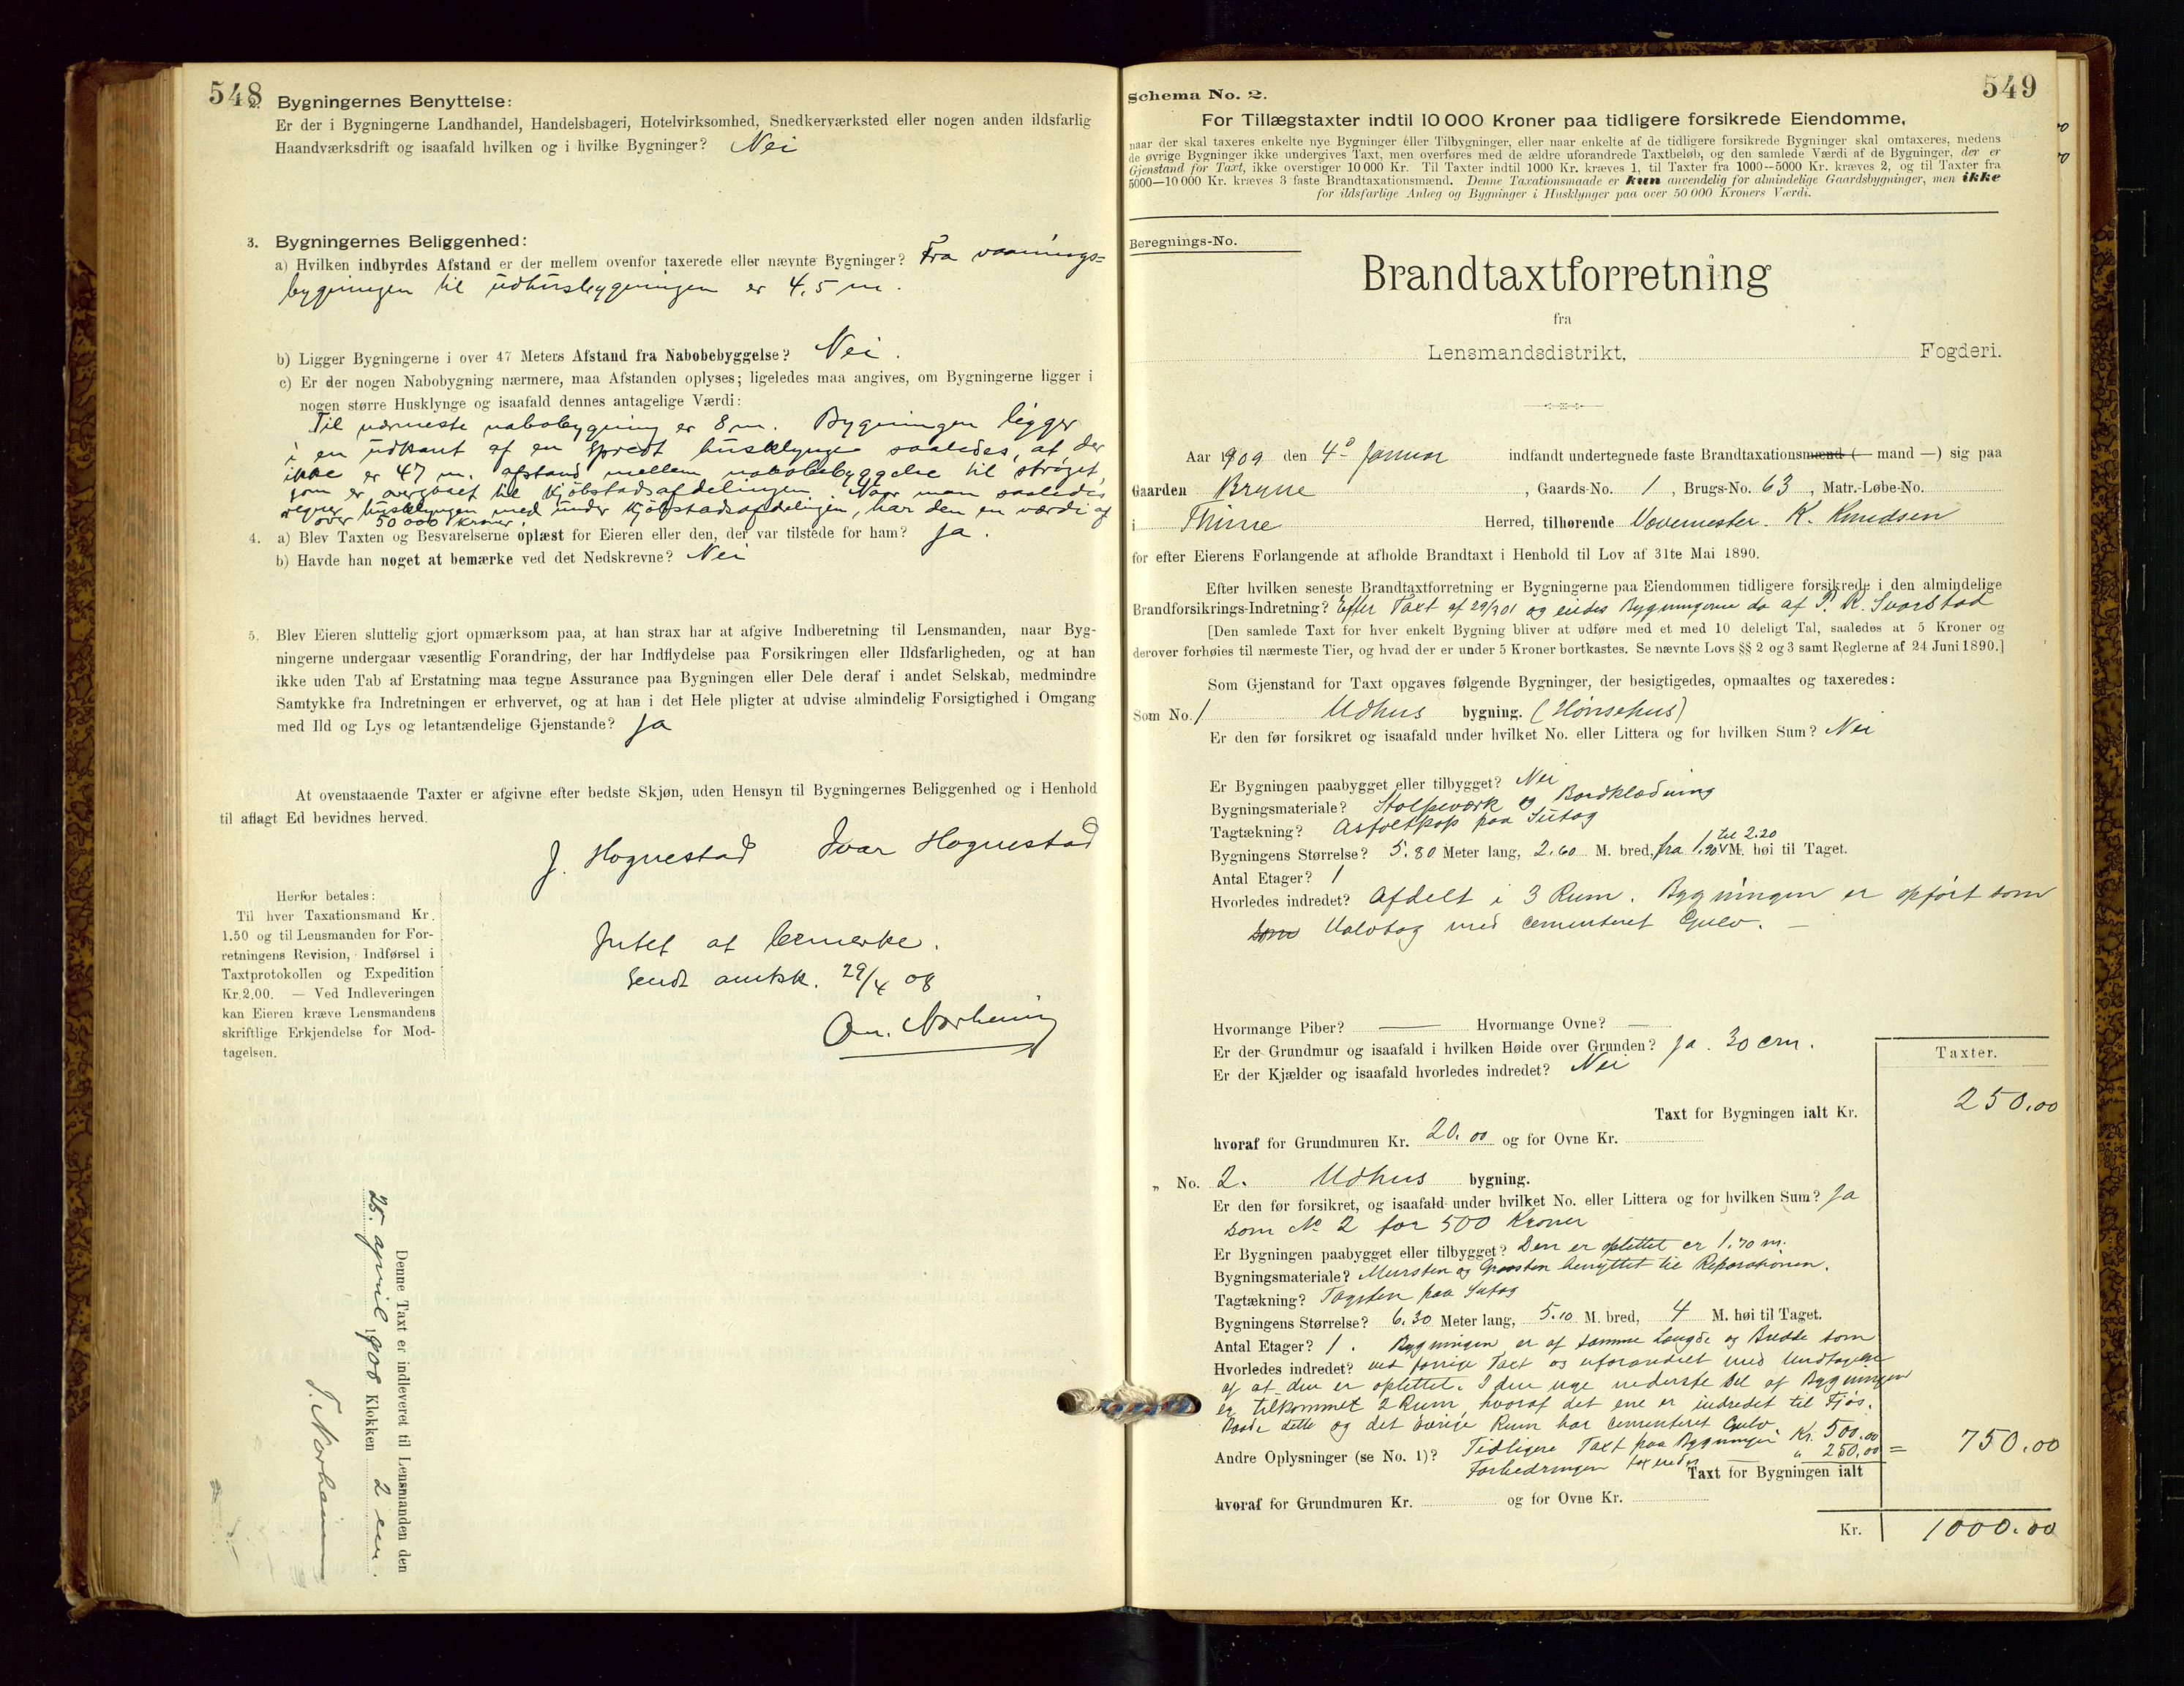 548
2. Bygningernes Benyttelse:
Er der i Bygningerne Landhandel, Handelsbageri, Hotelvirksomhed, Snedkerværksted eller nogen anden ildsfarlig
Haandværksdrift og isaafald hvilken og i hvilke Bygninger? Nei
3. Bygningernes Beliggenhed:
a) Hvilken indbyrdes Afstand er der mellem ovenfor taxerede eller nævnte Bygninger? Fra vaanings=
bygningen til udhusbygningen er 4,5 m.
b) Ligger Bygningerne i over 47 Meters Afstand fra Nabobebyggelse? Nei.
c) Er der nogen Nabobygning nærmere, maa Afstanden oplyses; ligeledes maa angives, om Bygningerne ligger i
nogen større Husklynge og isaafald dennes antagelige Værdi:
Til nærmeste nabobygning er 8 m. Bygningen ligger
i en udkant af en spredt husklynge saaledes, at der
ikke er 47 m. afstand mellem nabobebyggelse til strøget,
som er overgaaet til Kjøbstadsafdelingen. Naar man saaledes
regner husklyngen med under Kjøbstadsafdelingen, har den en værdi af
over 50 000 kroner.
4. a) Blev Taxten og Besvarelserne oplæst for Eieren eller den, der var tilstede for ham? Ja.
b) Havde han noget at bemærke ved det Nedskrevne? Nei
5. Blev Eieren sluttelig gjort opmærksom paa, at han strax har at afgive Indberetning til Lensmanden, naar Byg-
ningerne undergaar væsentlig Forandring, der har Indflydelse paa Forsikringen eller Ildsfarligheden, og at han
ikke uden Tab af Erstatning maa tegne Assurance paa Bygningen eller Dele deraf i andet Selskab, medmindre
Samtykke fra Indretningen er erhvervet, og at han i det Hele pligter at udvise almindelig Forsigtighed i Omgang
med Ild og Lys og letantændelige Gjenstande? Ja
At ovenstaaende Taxter er afgivne efter bedste Skjøn, uden Hensyn til Bygningernes Beliggenhed og i Henhold
til aflagt Ed bevidnes herved.
J. Hognestad Ivar Hognestad
Herfor betales:
Til hver Taxationsmand Kr.
1.50 og til Lensmanden for For-
retningens Revision, Indførsel i
Taxtprotokollen og Expedition
Kr. 2.00. — Ved Indleveringen
kan Eieren kræve Lensmandens
skriftlige Erkjendelse for Mod-
tagelsen.
Intet at bemerke.
Sendt amtsk. 29/4 08
Denne Taxt er indleveret til Lensmanden den
25. april 1908 Klokken 2 em.
549
Schema No. 2.
For Tillægstaxter indtil 10 000 Kroner paa tidligere forsikrede Eiendomme,
naar der skal taxeres enkelte nye Bygninger eller Tilbygninger, eller naar enkelte af de tidligere forsikrede Bygninger skal omtaxeres, medens
de øvrige Bygninger ikke undergives Taxt, men overføres med de ældre uforandrede Taxtbeløb, og den samlede Værdi af de Bygninger, der er
Gjenstand for Taxt, ikke overstiger 10 000 Kr. Til Taxter indtil 1000 Kr. kræves 1, til Taxter fra 1000—5000 Kr. kræves 2, og til Taxter fra
5000—10 000 Kr. kræves 3 faste Brandtaxationsmænd. Denne Taxationsmaade er kun anvendelig for almindelige Gaardsbygninger, men ikke
for ildsfarlige Anlæg og Bygninger i Husklynger paa over 50 000 Kroners Værdi.
Beregnings-No.
Brandtaxtforretning
fra
Lensmandsdistrikt, Fogderi.
Aar 1909 den 4de Januar indfandt undertegnede faste Brandtaxationsmænd (— mand —) sig paa
Gaarden Bryne, Gaards-No. 1, Brugs-No. 63, Matr.-Løbe-No.
i Thime Herred, tilhørende Vævemester K. Knudsen
for efter Eierens Forlangende at afholde Brandtaxt i Henhold til Lov af 31te Mai 1890.
Efter hvilken seneste Brandtaxtforretning er Bygningerne paa Eiendommen tidligere forsikrede i den almindelige
Brandforsikrings-Indretning? Efter Taxt af 29/3 01 og eiedes Bygningerne da af P. K. Svarstad
[Den samlede Taxt for hver enkelt Bygning bliver at udføre med et med 10 deleligt Tal, saaledes at 5 Kroner og
derover forhøies til nærmeste Tier, og hvad der er under 5 Kroner bortkastes. Se nævnte Lovs §§ 2 og 3 samt Reglerne af 24 Juni 1890.]
Som Gjenstand for Taxt opgaves følgende Bygninger, der besigtigedes, opmaaltes og taxeredes:
Som No. 1 Udhus bygning. (Hønsehus)
Er den før forsikret og isaafald under hvilket No. eller Littera og for hvilken Sum? Nei
Er Bygningen paabygget eller tilbygget? Nei
Bygningsmateriale? Stolpeværk og Bordklædning
Tagtækning? Asfaltpap paa Sutag
Bygningens Størrelse? 5.80 Meter lang, 2.60 M. bred, fra 1.90 til 2.20 M. høi til Taget.
Antal Etager? 1
Hvorledes indredet? Afdelt i 3 Rum. Bygningen er opført som
som Halvtag med cementeret Gulv. —
Hvormange Piber? — Hvormange Ovne? —
Er der Grundmur og isaafald i hvilken Høide over Grunden? Ja. 30 cm.
Er der Kjælder og isaafald hvorledes indredet? Nei
Taxter.
Taxt for Bygningen ialt Kr. 250.00
hvoraf for Grundmuren Kr. 20.00 og for Ovne Kr.
„ No. 2. Udhus bygning.
Er den før forsikret, og isaafald under hvilket No. eller Littera og for hvilken Sum? Ja
som No 2 for 500 Kroner
Er Bygningen paabygget eller tilbygget? Den er opløttet er 1.70 m.
Bygningsmateriale? Mursten og Graasten benyttet til Reparationen.
Tagtækning? Tagsten paa Sutag
Bygningens Størrelse? 6.30 Meter lang, 5.10 M. bred, 4 M. høi til Taget.
Antal Etager? 1. Bygningen er af samme Længde og Bredde som
Hvorledes indredet? ved forrige Taxt og uforandret med Undtagelse
af at den er opløttet. I den nye nederste Del af Bygningen
er tilkommet 2 Rum, hvoraf det ene er indredet til Fjøs.
Baade dette og det øvrige Rum har cementeret Gulv
Andre Oplysninger (se No. 1)? Tidligere Taxt paa Bygningen Kr. 500.00
Forbedringen taxeredes „ 250.00 = 750.00
Taxt for Bygningen ialt
hvoraf for Grundmuren Kr. og for Ovne Kr.
Kr. 1000.00